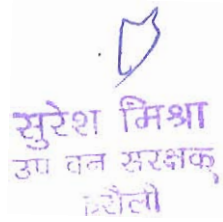 सुरेश मिश्रा
उप वन सरक्षक